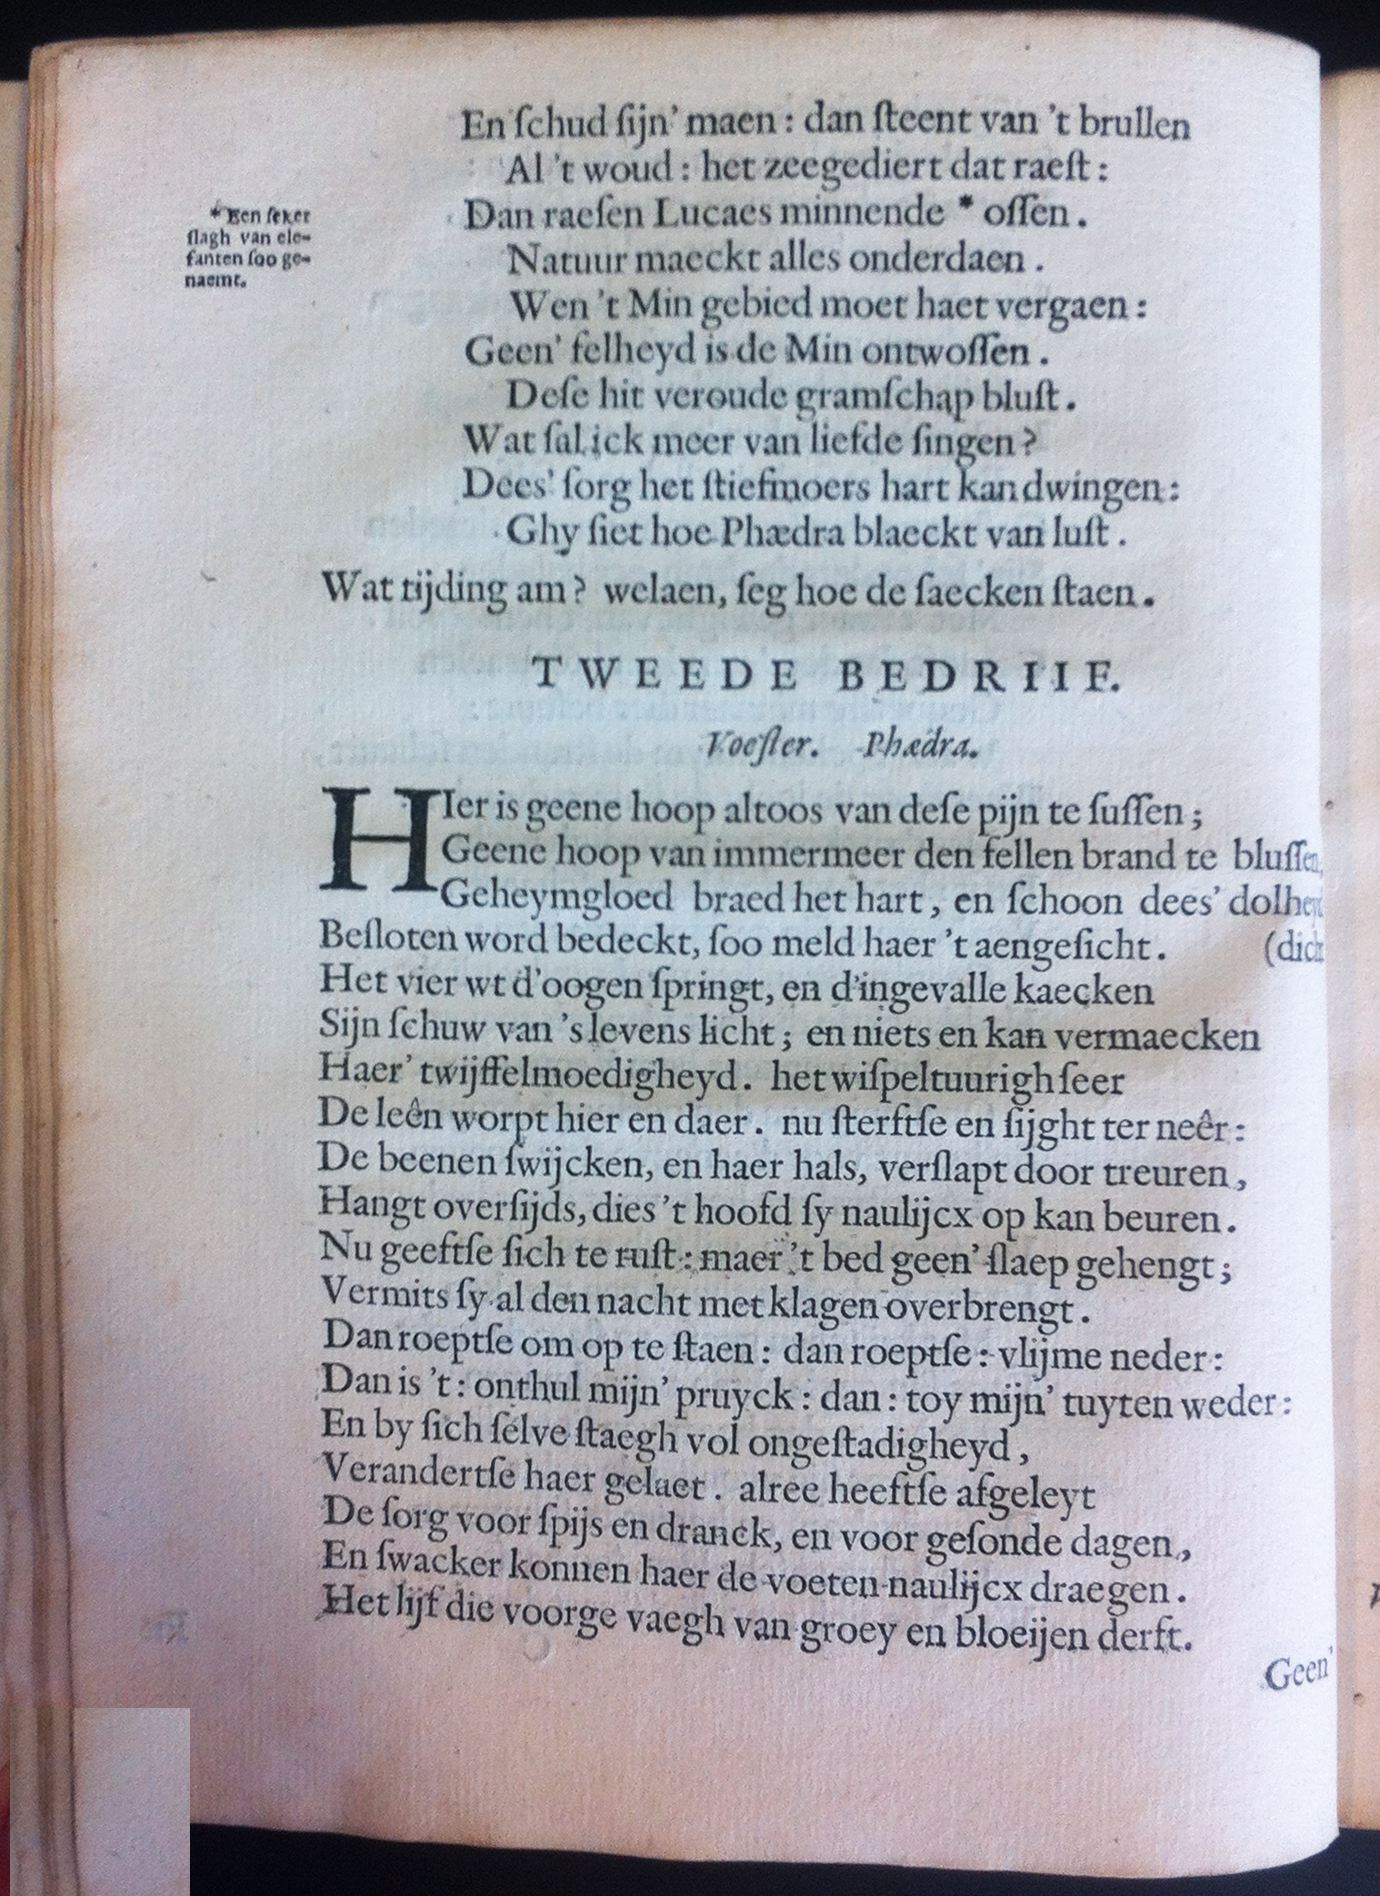 En ſchud ſijn' maen : dan ſteent van 't brullen
Al 't woud : het zeegediert dat raeſt :
* Een ſeker
ſlagh van ele-
fanten ſoo ge-
naemt.
Dan raeſen Lucaes minnende * oſſen .
Natuur maeckt alles onderdaen .
Wen 't Min gebied moet haet vergaen :
Geen' felheyd is de Min ontwoſſen .
Deſe hit veroude gramſchap bluſt .
Wat ſal ick meer van liefde ſingen ?
Dees' ſorg het ſtiefmoers hart kan dwingen :
Ghy ſiet hoe Phædra blaeckt van luſt .
Wat tijding am ? welaen, ſeg hoe de ſaecken ſtaen .
TWEEDE BEDRIIF.
Voeſter. Phædra.
HIer is geene hoop altoos van deſe pijn te ſuſſen ;
Geene hoop van immermeer den fellen brand te bluſſen,
Geheymgloed braed het hart , en ſchoon dees' dolheyd
Beſloten word bedeckt, ſoo meld haer 't aengeſicht . (dich
Het vier wt d'oogen ſpringt, en d'ingevalle kaecken
Sijn ſchuw van 's levens licht ; en niets en kan vermaecken
Haer' twijffelmoedigheyd . het wiſpeltuurigh ſeer
De leên worpt hier en daer . nu ſterftſe en ſijght ter neêr :
De beenen ſwijcken, en haer hals, verſlapt door treuren,
Hangt overſijds, dies 't hoofd ſy naulijcx op kan beuren .
Nu geeftſe ſich te ruſt : maer 't bed geen' ſlaep gehengt ;
Vermits ſy al den nacht met klagen overbrengt .
Dan roeptſe om op te ſtaen : dan roeptſe : vlijme neder :
Dan is 't : onthul mijn' pruyck : dan : toy mijn' tuyten weder :
En by ſich ſelve ſtaegh vol ongeſtadigheyd ,
Verandertſe haer gelaet . alree heeftſe afgeleyt
De ſorg voor ſpijs en dranck, en voor geſonde dagen ,
En ſwacker konnen haer de voeten naulijcx draegen .
Het lijf die voorge vaegh van groey en bloeijen derft.
Geen'